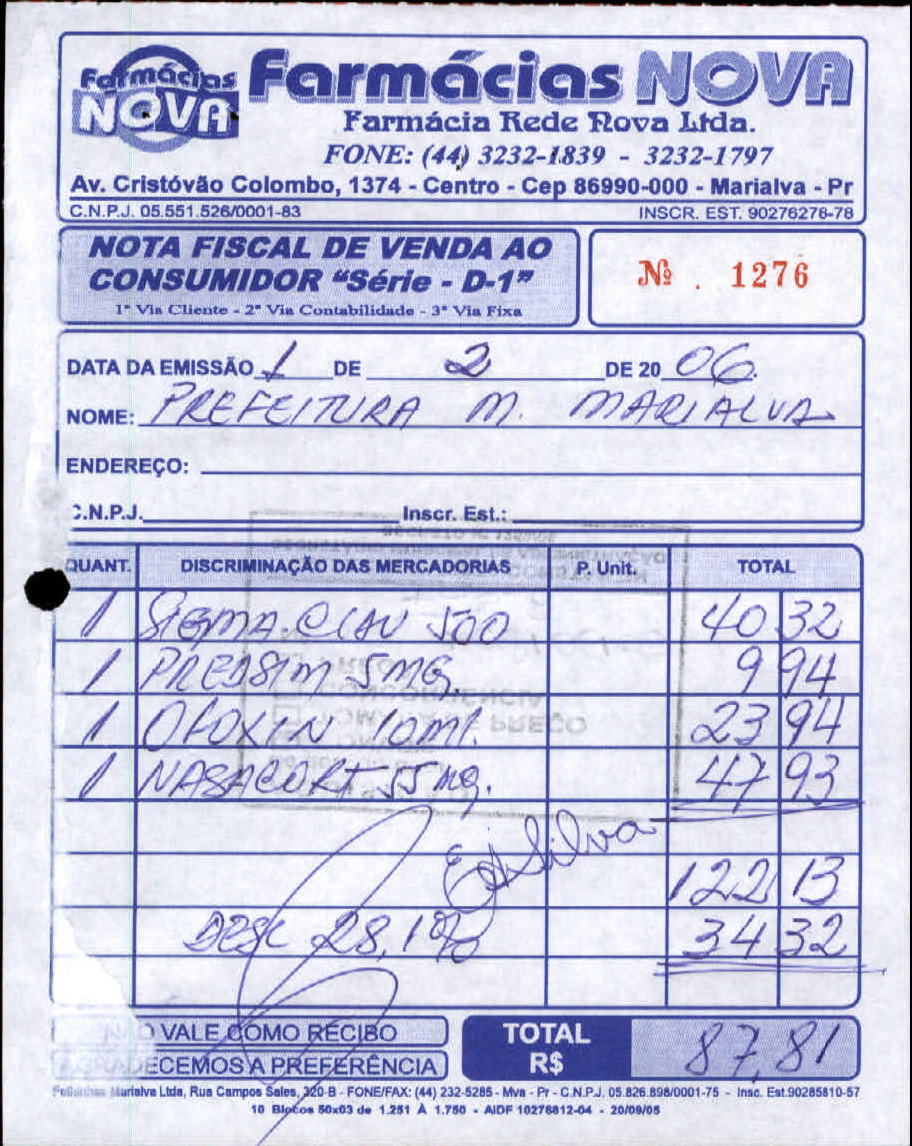 Farmácias NOVA
Farmácias NOVA
Farmácia Rede Nova Ltda.
FONE: (44) 3232-1839 - 3232-1797
Av. Cristóvão Colombo, 1374 - Centro - Cep 86990-000 - Marialva - Pr
C.N.P.J. 05.551.526/0001-83 INSCR. EST. 90276278-78
NOTA FISCAL DE VENDA AO
CONSUMIDOR “Série - D-1”
1ª Via Cliente - 2ª Via Contabilidade - 3ª Via Fixa
Nº . 1276
DATA DA EMISSÃO 1 DE 2 DE 20 06
NOME: PREFEITURA M. MARIALVA
ENDEREÇO:
C.N.P.J. Inscr. Est.:
QUANT. DISCRIMINAÇÃO DAS MERCADORIAS P. Unit. TOTAL
1 SIGMA CLAV 500 40 32
1 PREDSIM 5MG 9 94
1 OFOXIN 10ML 23 94
1 NASACORT 55 mg. 47 93
EdSilva
122 13
DESC 28,1% 34 32
NÃO VALE COMO RECIBO
AGRADECEMOS A PREFERÊNCIA
TOTAL
R$ 87,81
Marialva Ltda, Rua Campos Sales, 320-B - FONE/FAX: (44) 232-5285 - Mva - Pr - C.N.P.J. 05.826.898/0001-75 - Insc. Est.90285810-57
10 Blocos 50x03 de 1.251 À 1.750 - AIDF 10276812-04 - 20/09/05